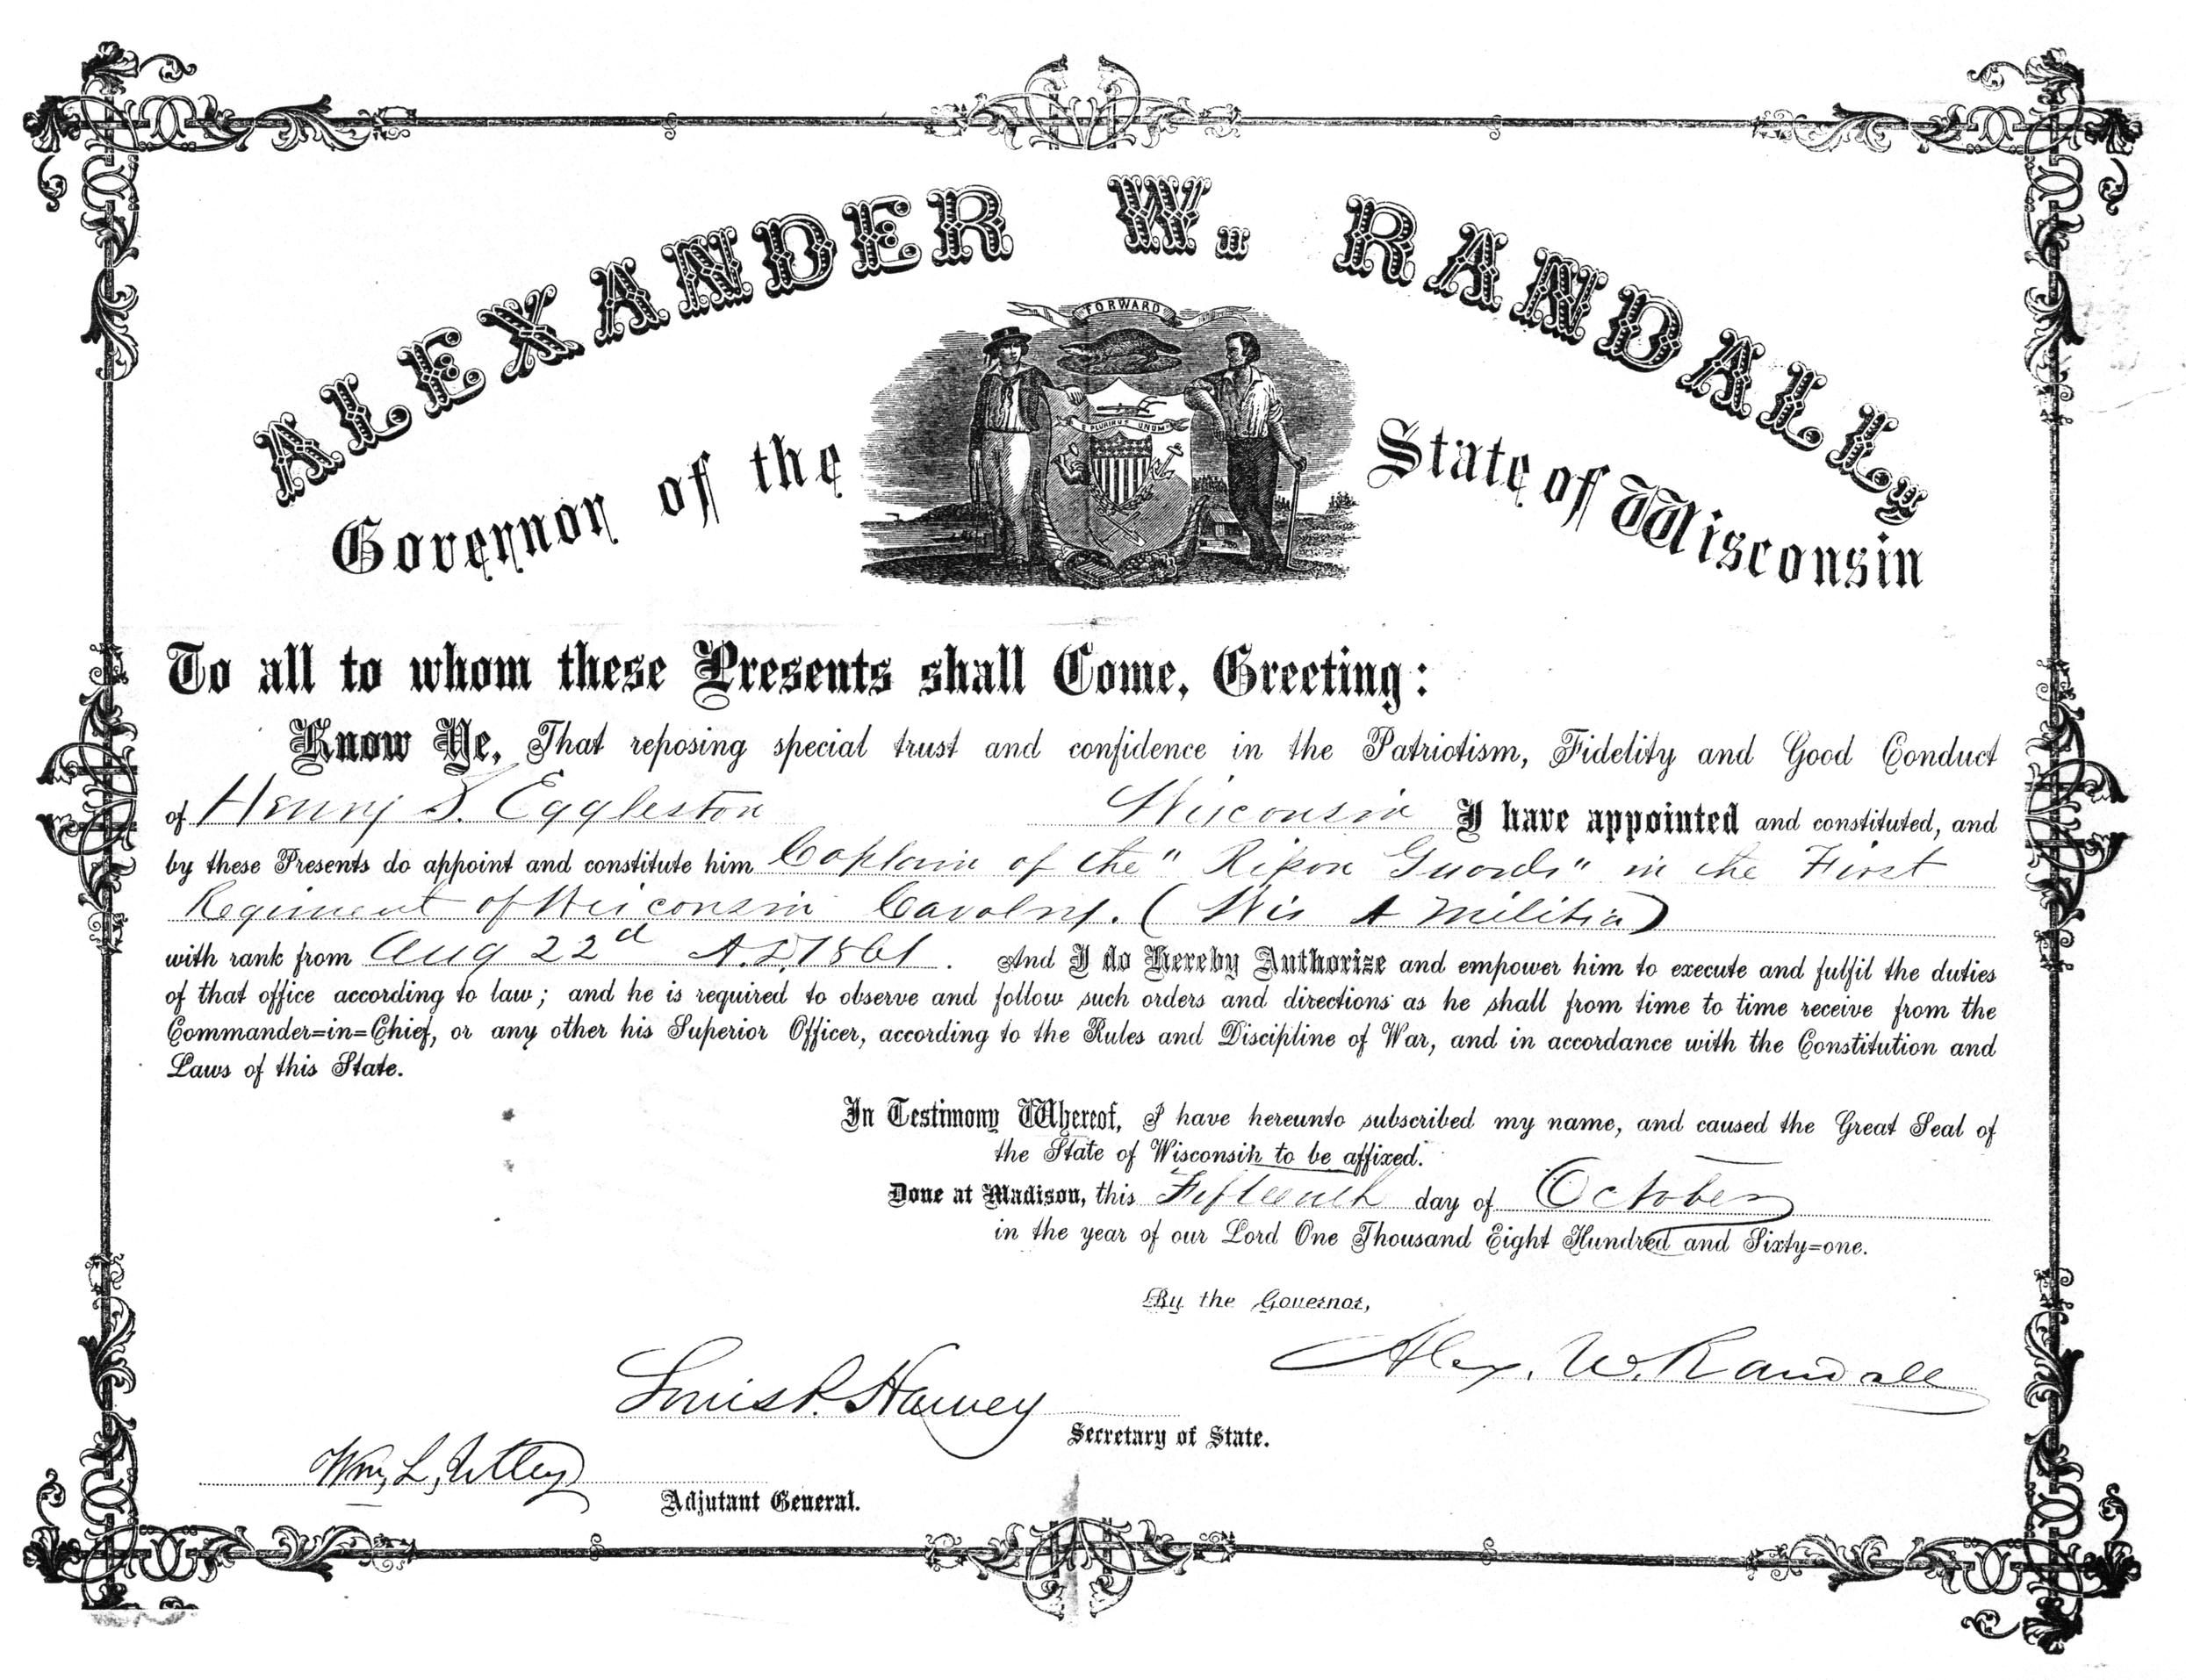 ALEXANDER W. RANDALL,
FORWARD
E PLURIBUS UNUM
Governor of the State of Wisconsin
To all to whom these Presents shall Come, Greeting:
Know Ye, That reposing special trust and confidence in the Patriotism, Fidelity and Good Conduct
of Henry S. Eggleston Wisconsin I have appointed and constituted, and
by these Presents do appoint and constitute him Captain of the "Ripon Guards" in the First
Regiment of Wisconsin Cavalry. (Wis A Militia)
with rank from Aug 22d A.D. 1861. And I do Hereby Authorize and empower him to execute and fulfil the duties
of that office according to law; and he is required to observe and follow such orders and directions as he shall from time to time receive from the
Commander=in=Chief, or any other his Superior Officer, according to the Rules and Discipline of War, and in accordance with the Constitution and
Laws of this State.
In Testimony Whereof, I have hereunto subscribed my name, and caused the Great Seal of
the State of Wisconsin to be affixed.
Done at Madison, this Fifteenth day of October
in the year of our Lord One Thousand Eight Hundred and Sixty=one.
By the Governor,
Alex. W. Randall
Louis P. Harvey
Secretary of State.
Wm. L. Utley
Adjutant General.